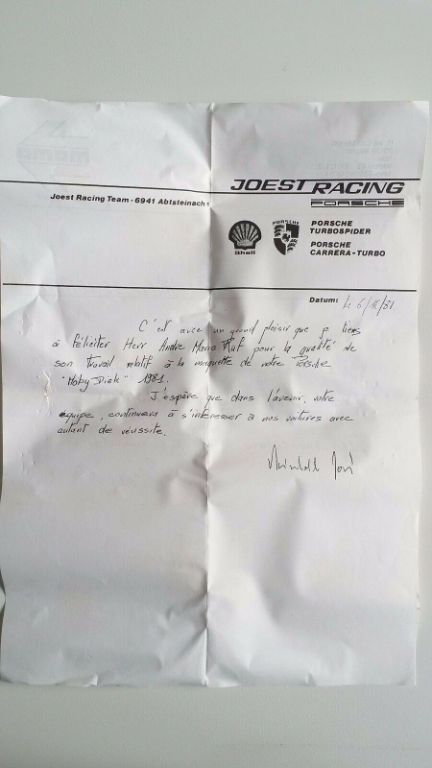 JOEST RACING
PORSCHE
Joest Racing Team - 6941 Abtsteinach
Shell
PORSCHE
PORSCHE
TURBOSPIDER
PORSCHE
CARRERA-TURBO
Datum: Le 6/
C'est avec un grand plaisir que je tiens
à féliciter Herr André Maria Ruf pour la qualité de
son travail relatif à la maquette de votre Porsche
"Moby Dick" 1981.
J'espère que dans l'avenir, votre
équipe, continuera à s'intéresser à nos voitures avec
autant de réussite.